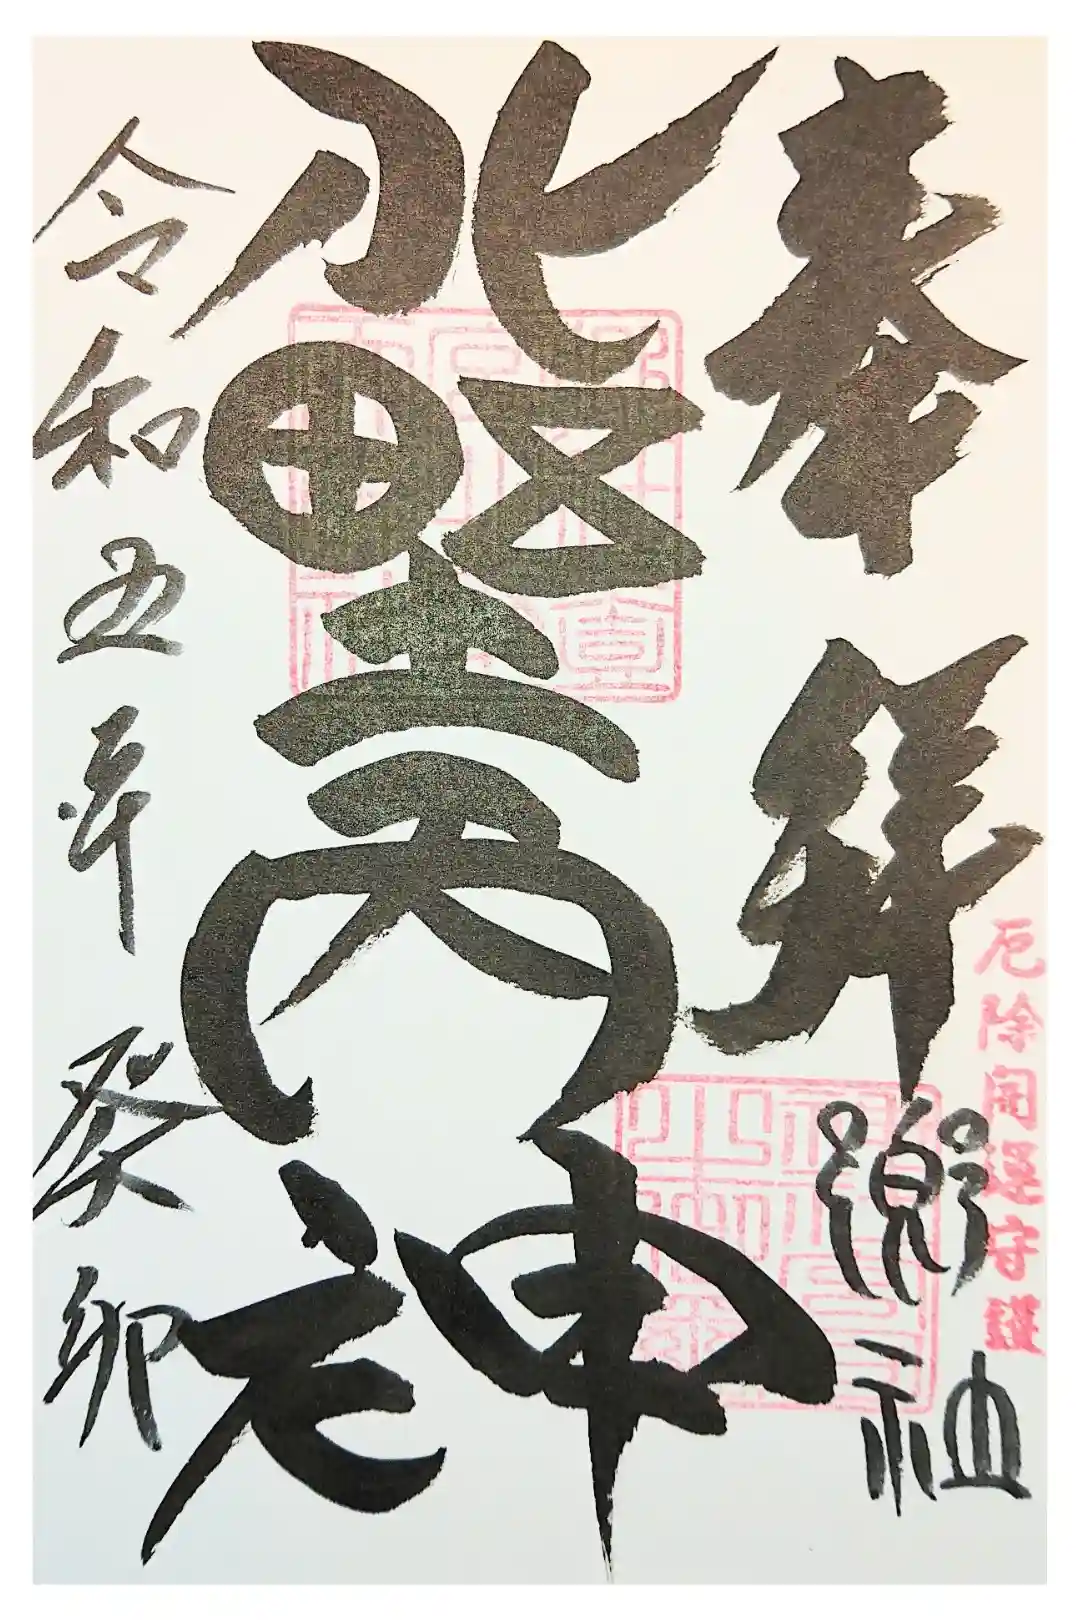 奉拝
厄除開運守護
北野天神
令和五年 癸卯